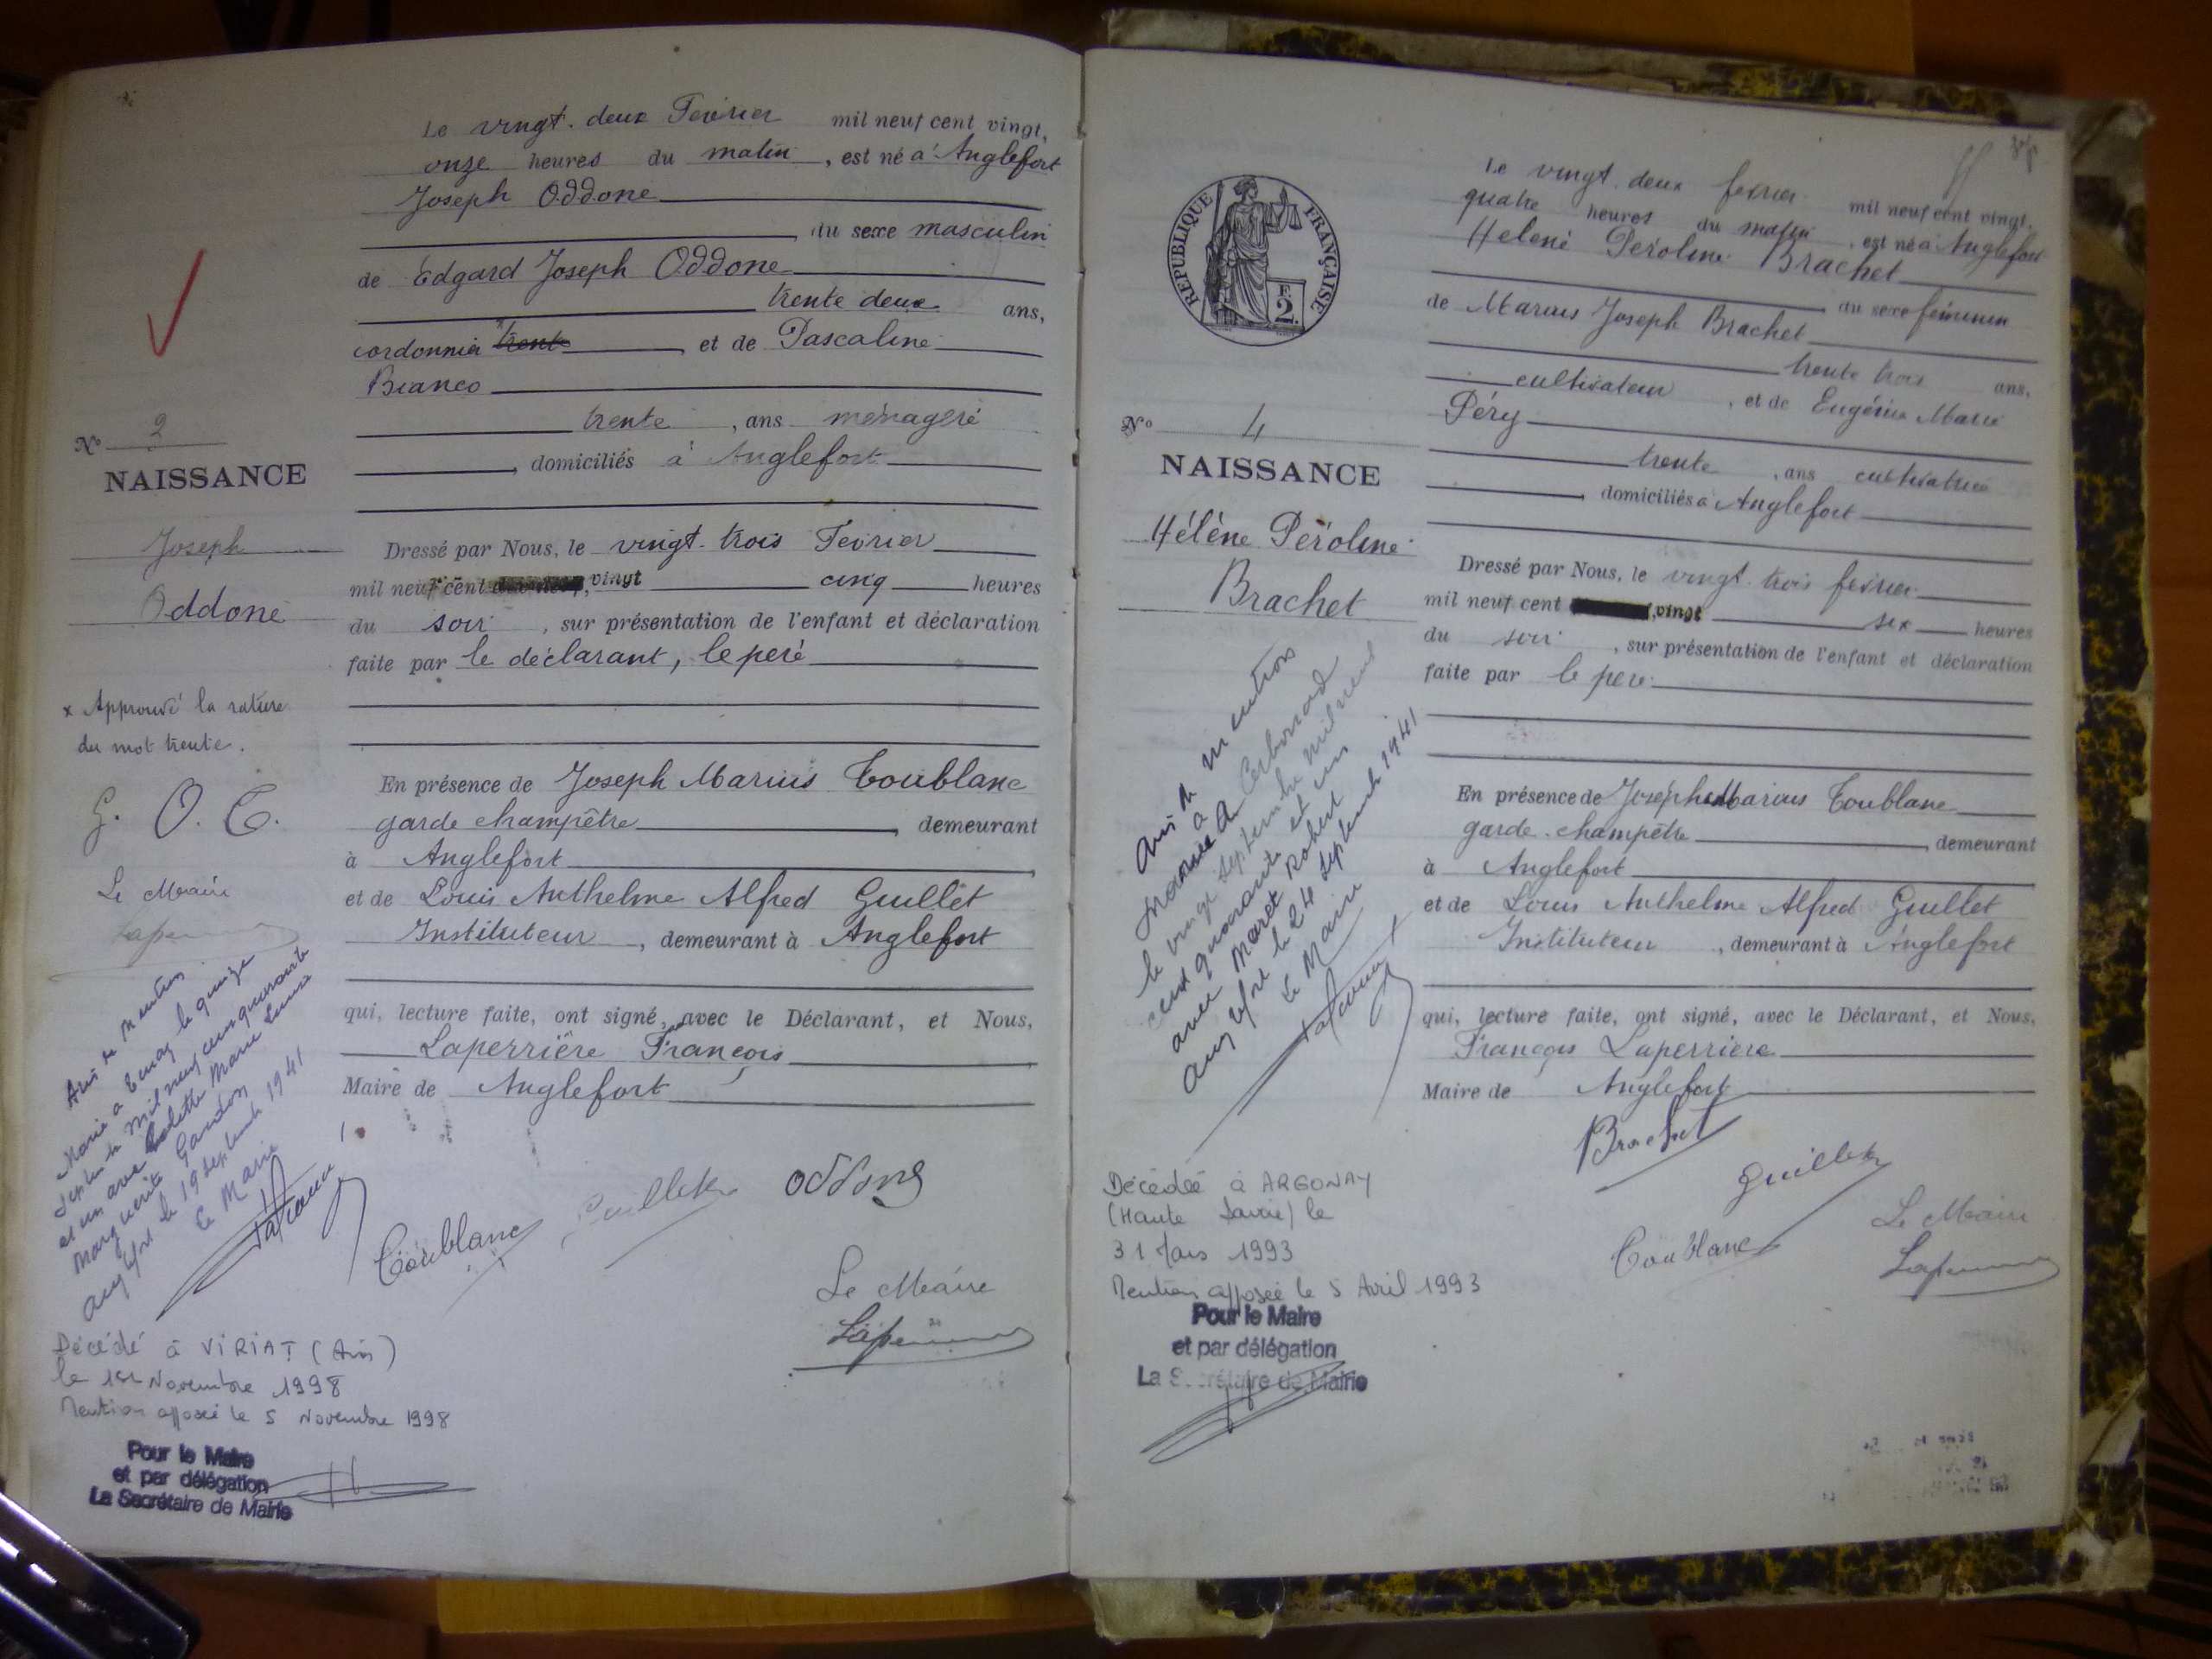 Le vingt-deux Fevrier mil neuf cent vingt,
onze heures du matin, est né à Anglefort
Joseph Oddone
du sexe masculin
de Edgard Joseph Oddone
trente deux ans,
cordonnier * trente et de Pascaline
Bianco
trente, ans ménagère
, domiciliés à Anglefort
Dressé par Nous, le vingt-trois Fevrier
mil neuf cent vingt cinq heures
du soir, sur présentation de l'enfant et déclaration
faite par le déclarant, le père
En présence de Joseph Marius Toublanc
garde champêtre, demeurant
à Anglefort
et de Louis Anthelme Alfred Guillet
Instituteur, demeurant à Anglefort
qui, lecture faite, ont signé, avec le Déclarant, et Nous,
Laperrière François
Maire de Anglefort
Toublanc Guillet Oddone
Le Maire
N° 3
NAISSANCE
Joseph
Oddone
x Approuvé la rature
du mot trente.
G. O. T.
Le Maire
Avis de mention
Marié à le quinze
septembre mil neuf cent quarante
et un avec Colette Marie Louise
Marguerite
Anglefort le 19 septembre 1941
Le Maire
Décédé à VIRIAT (Ain)
le 1er Novembre 1998
Mention apposée le 5 Novembre 1998
Pour le Maire
et par délégation
La Secrétaire de Mairie
REPUBLIQUE FRANÇAISE
F.
2.
Le vingt-deux fevrier mil neuf cent vingt,
quatre heures du matin, est né à Anglefort
Helene Péroline Brachet
du sexe féminin
de Marius Joseph Brachet
trente trois ans,
cultivateur, et de Eugénie Marie
Péry
trente, ans cultivatrice
, domiciliés à Anglefort
Dressé par Nous, le vingt-trois fevrier
mil neuf cent vingt six heures
du soir, sur présentation de l'enfant et déclaration
faite par le père
En présence de Joseph Marius Toublanc
garde-champêtre, demeurant
à Anglefort
et de Louis Anthelme Alfred Guillet
Instituteur, demeurant à Anglefort
qui, lecture faite, ont signé, avec le Déclarant, et Nous,
François Laperrière
Maire de Anglefort
Brachet
Guillet
Toublanc
Le Maire
N° 4
NAISSANCE
Hélène Péroline
Brachet
Avis de mention
Mariée à Corbonod
le vingt septembre mil neuf
cent quarante et un
avec Maret Robert
Anglefort le 24 septembre 1941
Le Maire
Décédée à ARGONAY
(Haute Savoie) le
31 Mars 1993
Mention apposée le 5 Avril 1993
Pour le Maire
et par délégation
La Secrétaire de Mairie